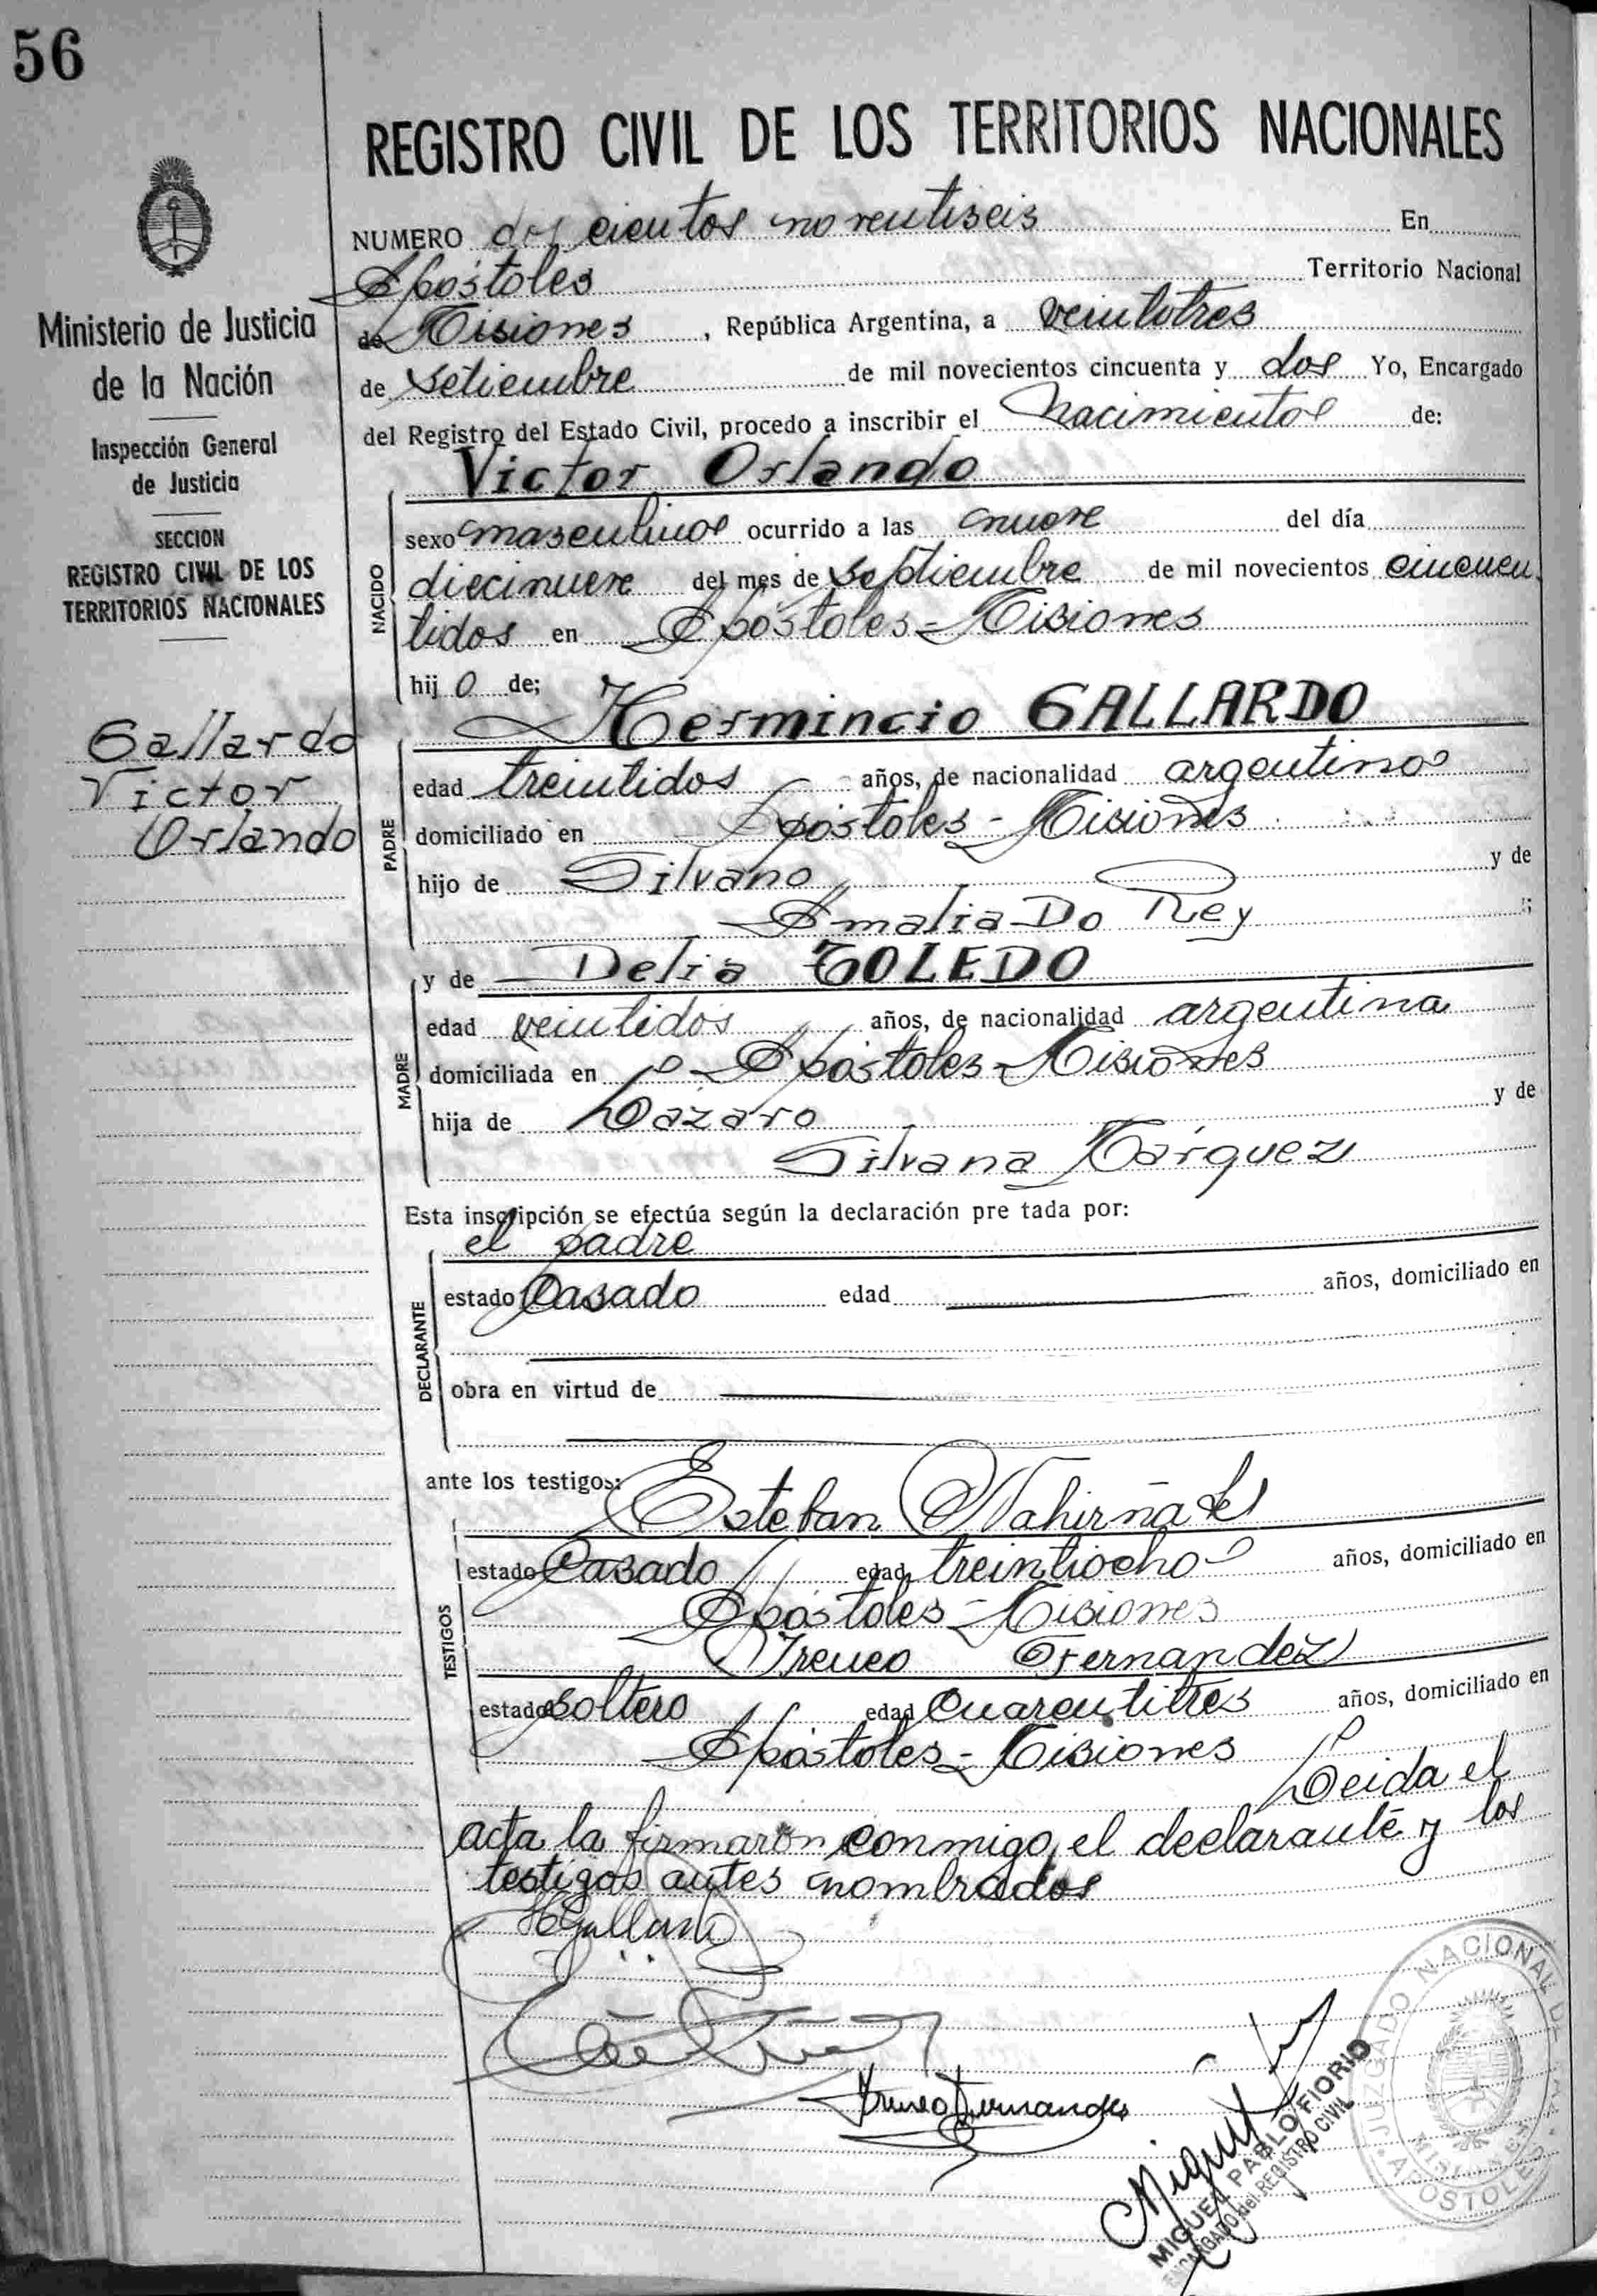 56
REGISTRO CIVIL DE LOS TERRITORIOS NACIONALES
Ministerio de Justicia
de la Nación
Inspección General
de Justicia
SECCION
REGISTRO CIVIL DE LOS
TERRITORIOS NACIONALES
Gallardo
Victor
Orlando
NUMERO dos cientos noventiseis En
Apóstoles Territorio Nacional
de Misiones, República Argentina, a veintitres
de Setiembre de mil novecientos cincuenta y dos Yo, Encargado
del Registro del Estado Civil, procedo a inscribir el nacimiento de:
Victor Orlando
NACIDO
sexo masculino ocurrido a las nueve del día
diecinueve del mes de Septiembre de mil novecientos cincuen
tidos en Apóstoles - Misiones
hij o de;
Hermincio GALLARDO
PADRE
edad treintidos años, de nacionalidad argentino
domiciliado en Apóstoles - Misiones
hijo de Silvano y de
Amalia Do Rey ;
y de Delia TOLEDO
MADRE
edad veintidos años, de nacionalidad argentina
domiciliada en Apóstoles - Misiones
hija de Lázaro y de
Silvana Márquez
Esta inscripción se efectúa según la declaración pre tada por:
el padre
DECLARANTE
estado Casado edad años, domiciliado en
obra en virtud de
ante los testigos:
Esteban Nahirñak
TESTIGOS
estado Casado edad treintiocho años, domiciliado en
Apóstoles - Misiones
Ireneo Fernandez
estado soltero edad cuarentitres años, domiciliado en
Apóstoles - Misiones Leida el
acta la firmaron conmigo, el declarante y los
testigos antes nombrados
HGallardo
Ireneo Fernandez
Miguel
MIGUEL PABLO FIORIO
ENCARGADO del REGISTRO CIVIL
JUZGADO NACIONAL DE PAZ
MISIONES
APOSTOLES